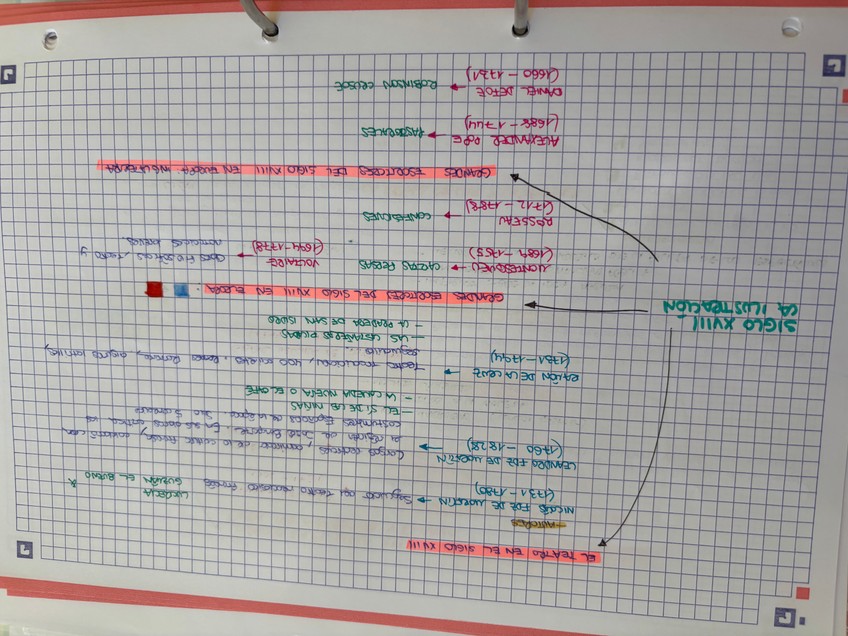 EL TEATRO EN EL SIGLO XVIII
- AUTORES
NICOLÁS FDZ DE MORATÍN → Seguidor del teatro neoclásico francés
(1731 - 1780)
LUCRECIA
GUZMÁN EL BUENO
LEANDRO FDZ DE MORATÍN
(1760 - 1828)
Cargos políticos, admirador de la cultura francesa,
de José Bonaparte. En sus obras critica las
costumbres españolas de la época
- EL SÍ DE LAS NIÑAS
- LA COMEDIA NUEVA O EL CAFÉ
RAMÓN DE LA CRUZ
(1731 - 1794)
Teatro tradicional, 400 sainetes
- LAS CASTAÑERAS PICADAS
- LA PRADERA DE SAN ISIDRO
SIGLO XVIII
LA ILUSTRACIÓN
GRANDES ESCRITORES DEL SIGLO XVIII EN EUROPA.
MONTESQUIEU → CARTAS PERSAS
(1689 - 1755)
VOLTAIRE → Obras filosóficas, teatro y
(1694-1778) narraciones breves.
ROSSEAU → CONFESIONES
(1712 - 1788)
GRANDES ESCRITORES DEL SIGLO XVIII EN EUROPA: INGLATERRA
ALEXANDER POPE → PASTORALES
(1688 - 1744)
DANIEL DEFOE → ROBINSON CRUSOE
(1660 - 1731)